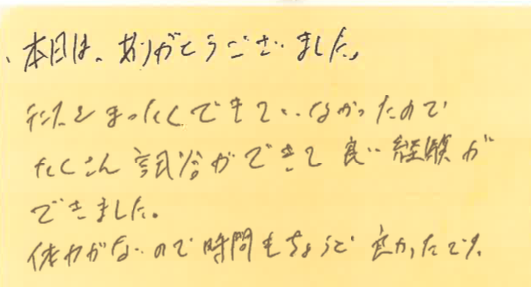 本日は、ありがとうございました。
テニスをまったくできていなかったので
たくさん試合ができて良い経験が
できました。
体力がないので時間もちょうど良かったです。